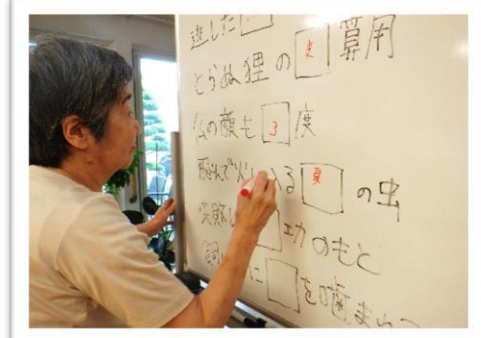 逃した
とらぬ狸の皮算用
仏の顔も3度
飛んで火に入る夏の虫
失敗は 功のもと
飼 に を噛まれ